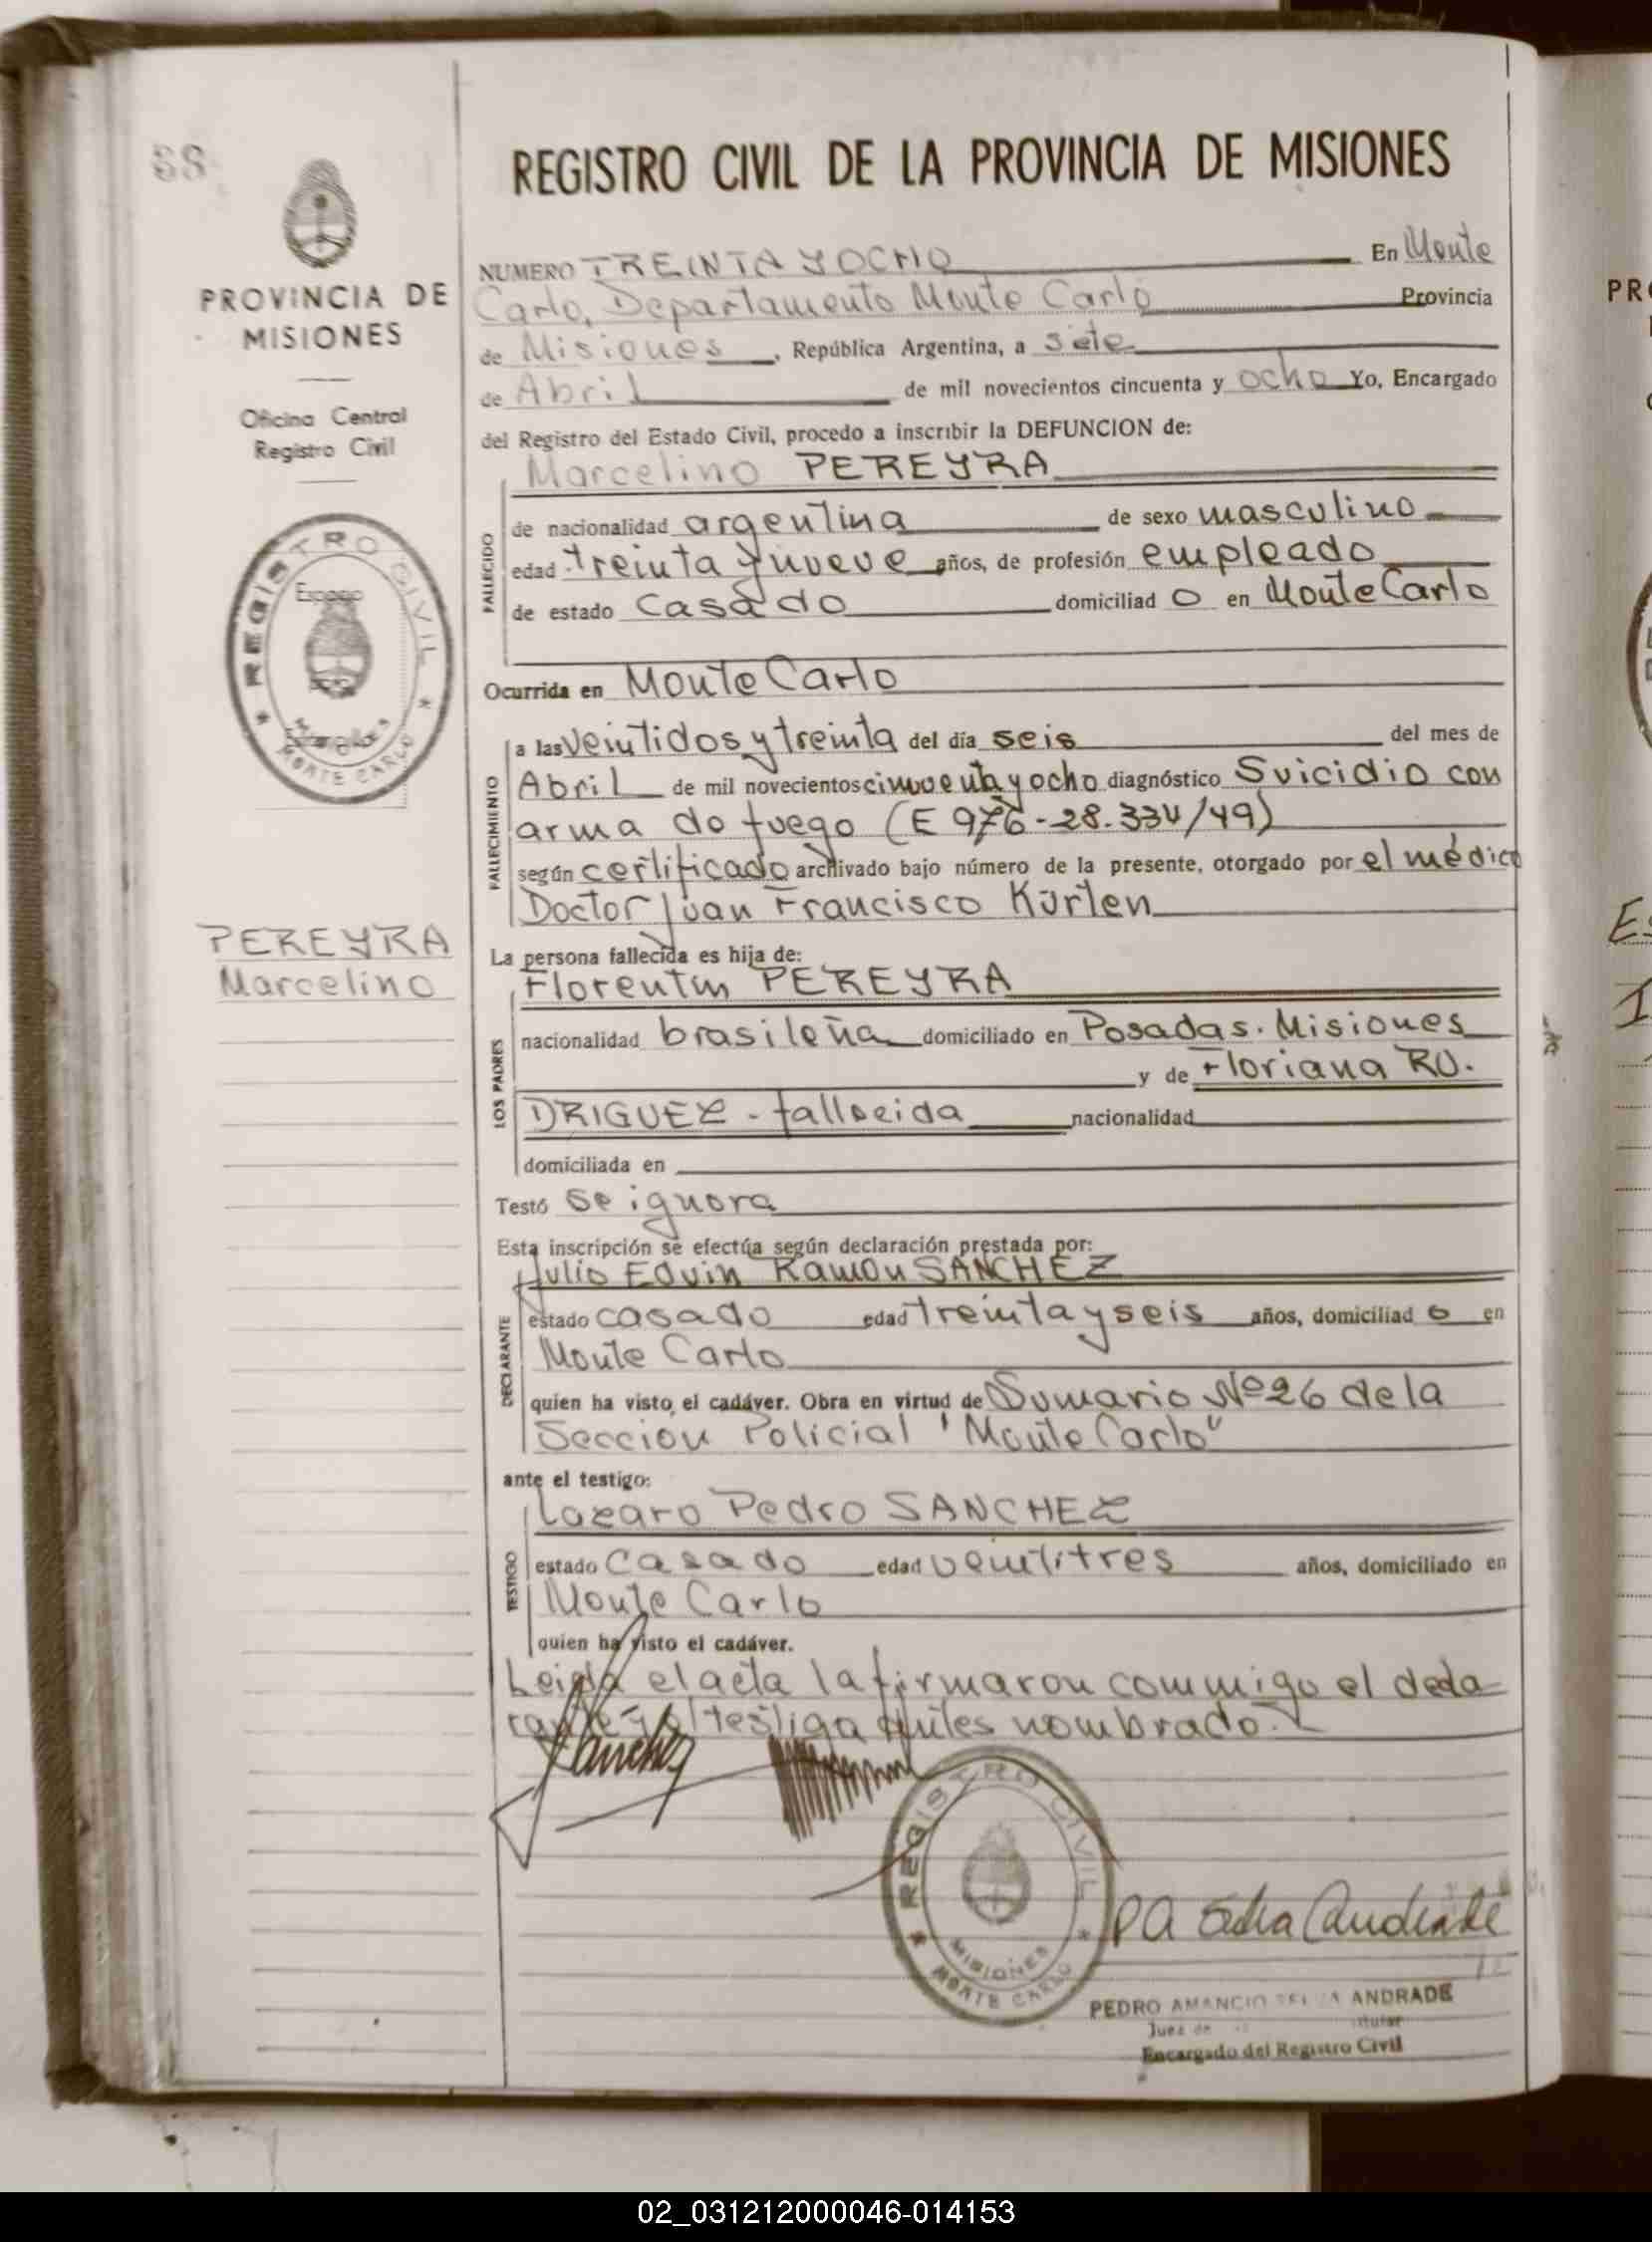 68
PROVINCIA DE
MISIONES
Oficina Central
Registro Civil
REGISTRO CIVIL
MISIONES
MONTE CARLO
PEREYRA
Marcelino
REGISTRO CIVIL DE LA PROVINCIA DE MISIONES
NUMERO TREINTA Y OCHO En Monte
Carlo, Departamento Monte Carlo Provincia
de Misiones, República Argentina, a siete
de Abril de mil novecientos cincuenta y ocho Yo, Encargado
del Registro del Estado Civil, procedo a inscribir la DEFUNCION de:
Marcelino PEREYRA
FALLECIDO
de nacionalidad argentina de sexo masculino
edad treinta y nueve años, de profesión empleado
de estado Casado domiciliad o en Monte Carlo
Ocurrida en Monte Carlo
FALLECIMIENTO
a las veintidos y treinta del día seis del mes de
Abril de mil novecientos cincuenta y ocho diagnóstico Suicidio con
arma de fuego (E 976-28.334/49)
según certificado archivado bajo número de la presente, otorgado por el médico
Doctor Juan Francisco Kürten
La persona fallecida es hija de:
Florentin PEREYRA
LOS PADRES
nacionalidad brasileña domiciliado en Posadas. Misiones
y de Floriana RO.
DRIGUEZ - fallecida nacionalidad
domiciliada en
Testó se ignora
Esta inscripción se efectúa según declaración prestada por:
Julio Edvin Ramon SANCHEZ
DECLARANTE
estado casado edad treinta y seis años, domiciliad o en
Monte Carlo
quien ha visto el cadáver. Obra en virtud de Sumario Nº 26 de la
Seccion Policial "Monte Carlo"
ante el testigo:
Lazaro Pedro SANCHEZ
TESTIGO
estado Casado edad veintitres años, domiciliado en
Monte Carlo
quien ha visto el cadáver.
Leida el acta la firmaron conmigo el decla
rante y el testigo antes nombrado.
Sanchez
REGISTRO CIVIL
MISIONES
MONTE CARLO
PEDRO AMANCIO ANDRADE
Juez de Titular
Encargado del Registro Civil
PR
02_031212000046-014153